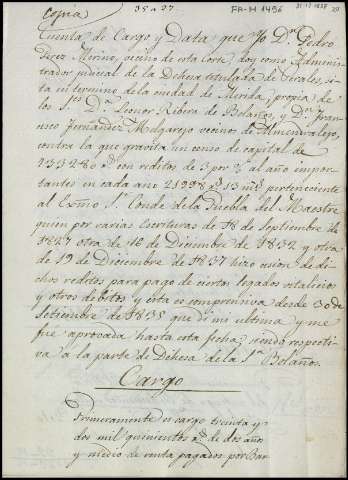 Copia
35 a 37
FA-M 1496
Cuenta de Cargo y Data que Yo Dn. Pedro
Perez Merino, vecino de esta Corte, doy como Adminis-
trador judicial de la Dehesa titulada de Perales, si-
ta en termino de la ciudad de Merida, propia de
los Sres. Da. Leonor Ribera de Bolaños, y Dn. Fran-
cisco Fernández Melgarejo vecinos de Almendralejo,
contra la que gravita un censo de capital de
con reditos de 3 por % al año impor-
tantes en cada año 21998 rs. 13 mrs. perteneciente
al Exmo Sr. Conde de la Puebla del Maestre
quien por varias Escrituras de 18 de Septiembre de
1827 otra de 16 de Diciembre de 1832 y otra
de 19 de Diciembre de 1837 hizo cesion de di-
chos reditos para pago de ciertos legados vitalicios
y otros debitos y esta es comprensiva desde 30 de
Setiembre de 1835 que di mi ultima y me
fué aprovada hasta esta fecha, siendo respecti-
va a la parte de Dehesa de la Sra. Bolaños.
Cargo
Primeramente es cargo treinta y
dos mil quinientos rs. de dos años
y medio de renta pagados por Bar-